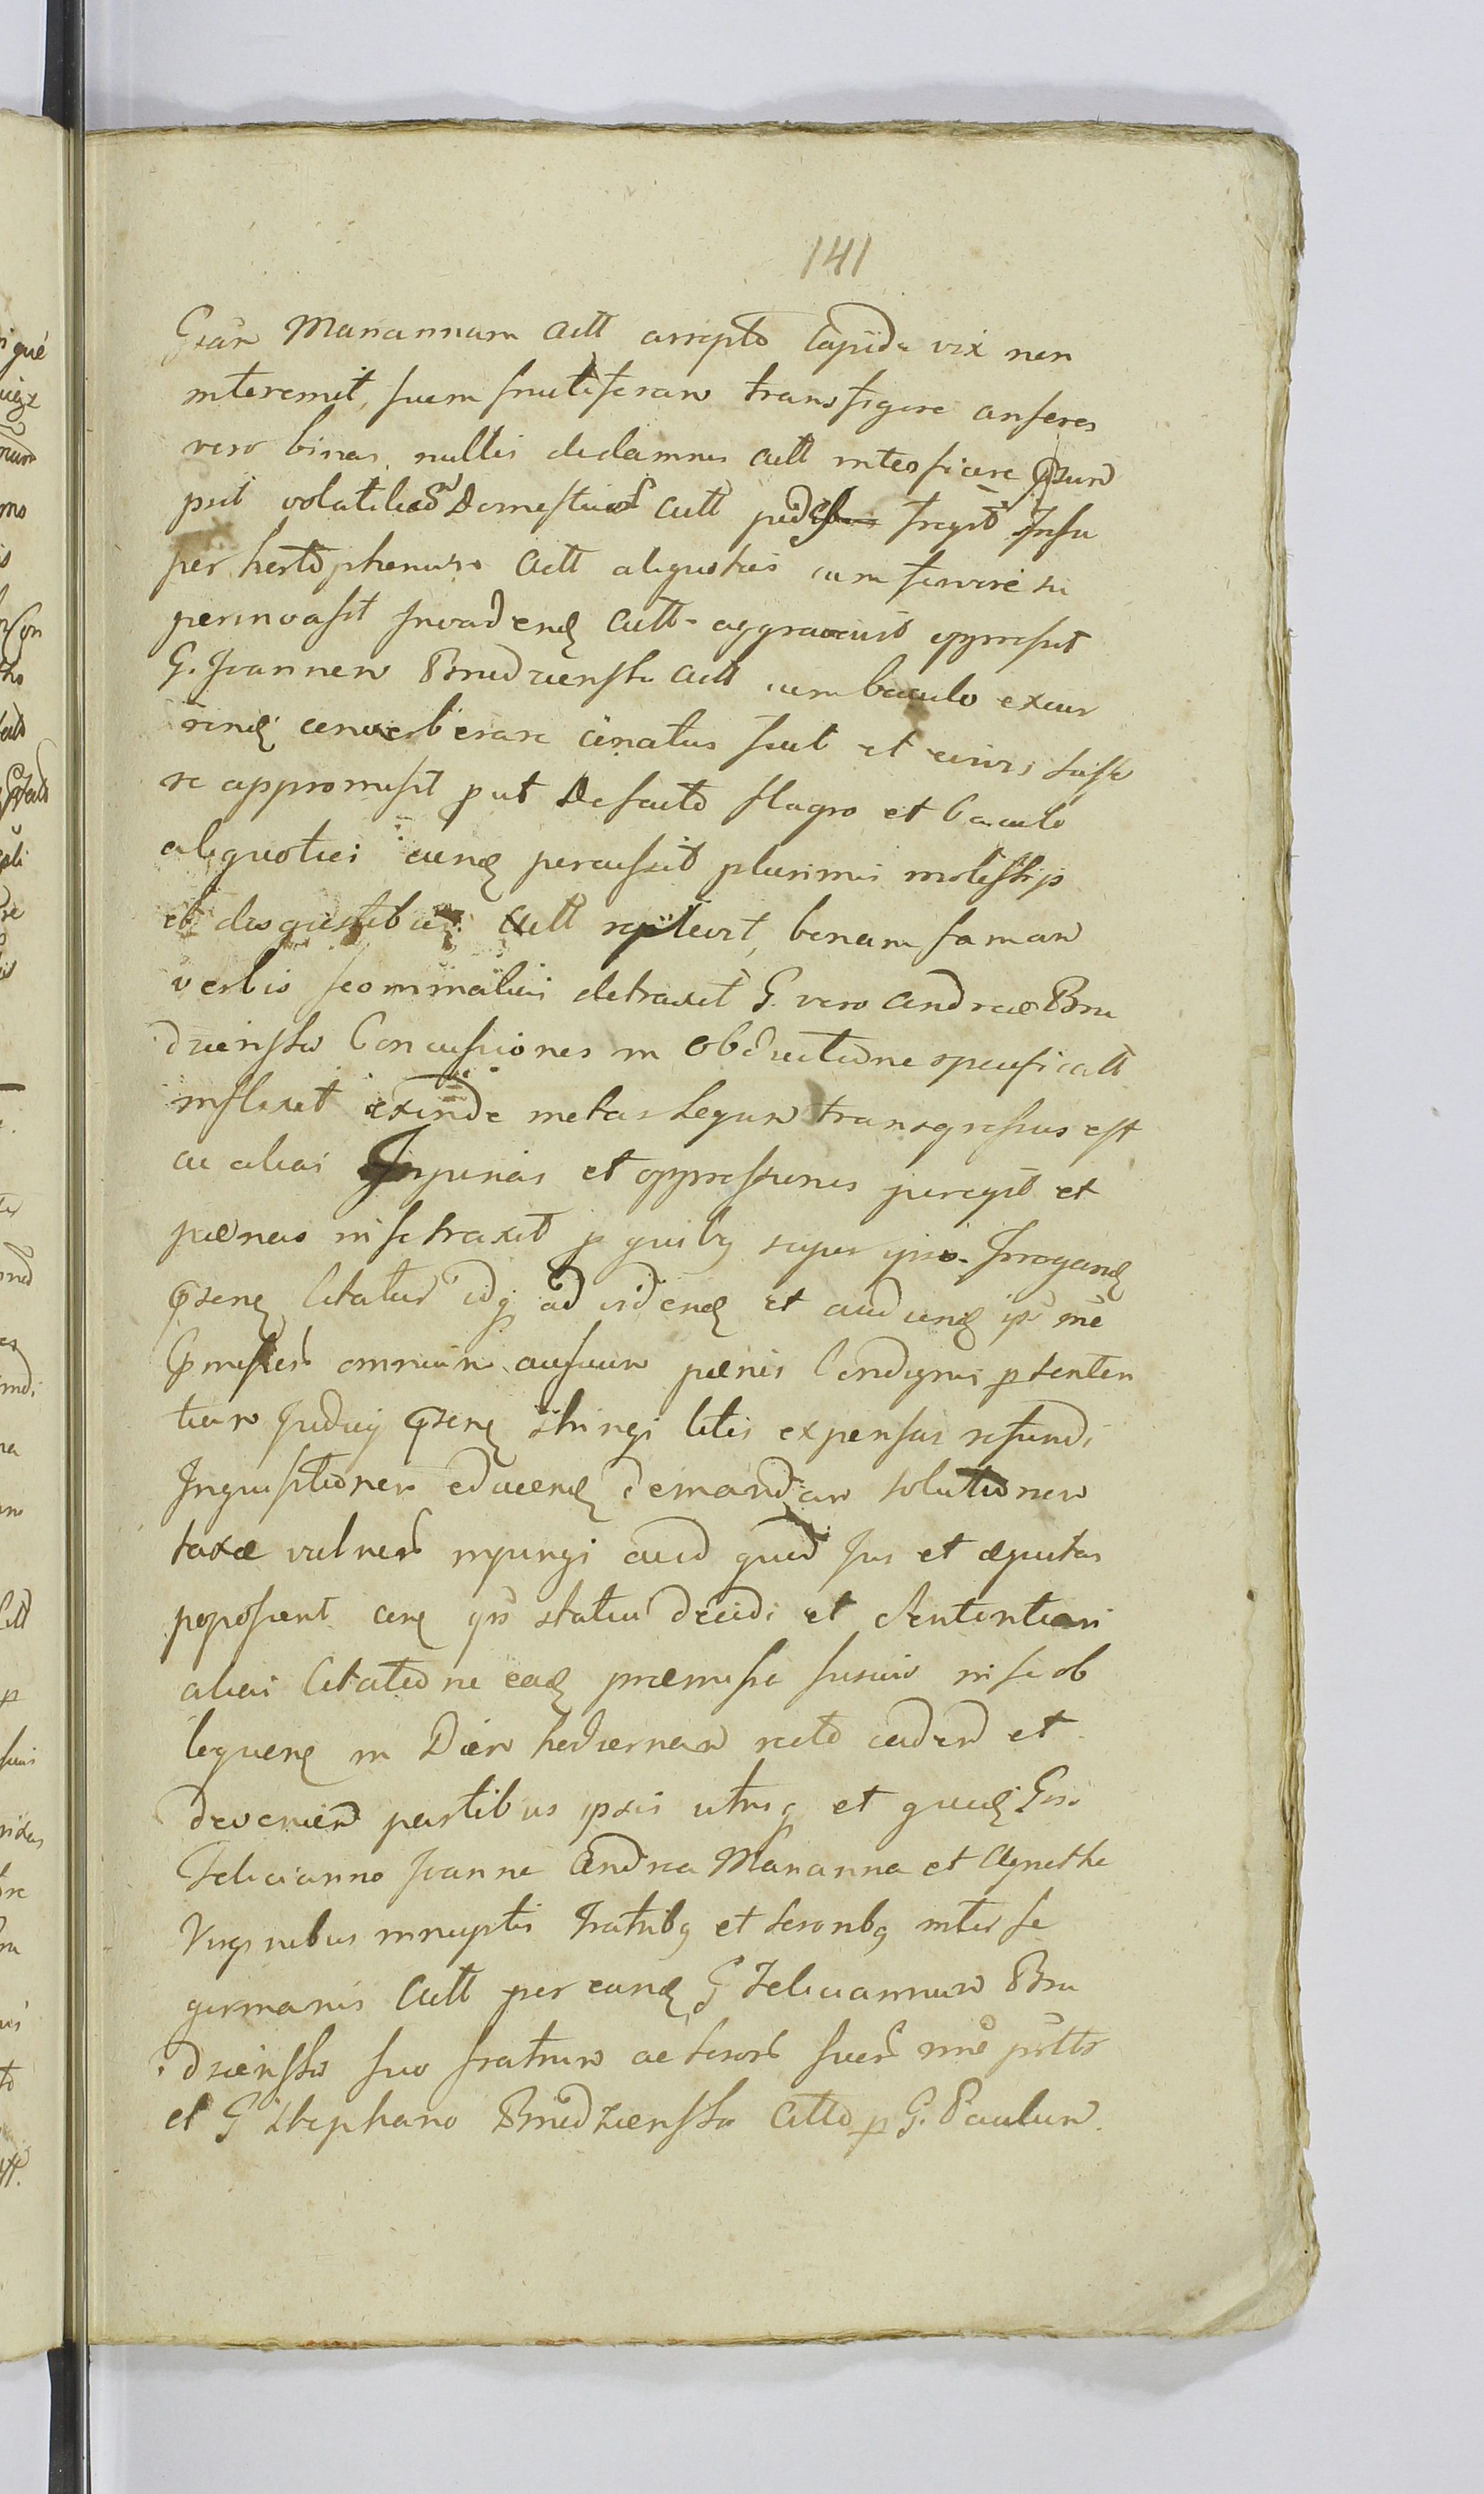 141
Gsam Mariannam Actt arrepto lapide vix non
interemit, suem fructiferam transfigere anseres
vero binas nullis de damnis Actt interficere
put volatilia Domestica Actt fregit Insu
per Actt aliquoties cum furore su
perinvasit Invadend Actt aggravavit oppressit
G. Joannem Brudzienski Actt cum baculo excur
rend converberare conatus fuit et
se appromisit put De facto flagro et baculo
aliquoties eund percussit plurimis molestijs
et disgustibus Actt replevit, bonam famam
verbis scommaticis detraxit G. vero Andreae Bru
dzienski Concussiones in Obductione specificatt
inflixit exinde metas Legum transgressus est
ac alias Injurias et oppressiones peregit et
paenas in se traxit p quibq super ipso Irrogand
psens Citatur idq ad vidend et audiend
pmissor omnium ausuum paenis Condignis p senten
tiam Judicij psens stringi litis expensas refundi
Inquisitionem educend demandari solutionem
taxae vulner injungi aliud quid Jus et aequitas
poposcerit decidi et Sententiari
alias Citatione ead praemissa fusius in se ob
loquens in Diem hodiernam recto caden et
devenien partibus ipsis utrisq et quid Gsis
Feliciano Joanne Andrea Marianna et Agnethe
Virginibus innuptis fratribq et sororibq inter se
germanis Actt per eund G Felicianum Bru
dzienski suo fratrum ac soror suar
et G Stephano Brudzienski Citto p G. Paulum